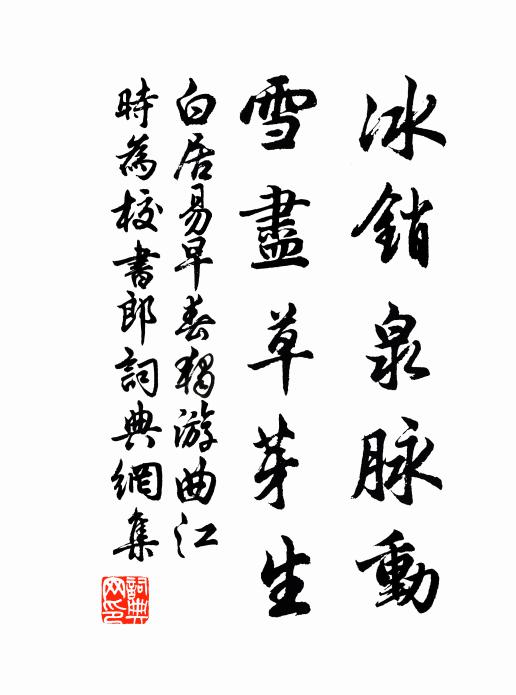 冰銷泉脉動
雪盡草芽生
白居易早春獨游曲江
時為校書郎詞典網集
詞典网印